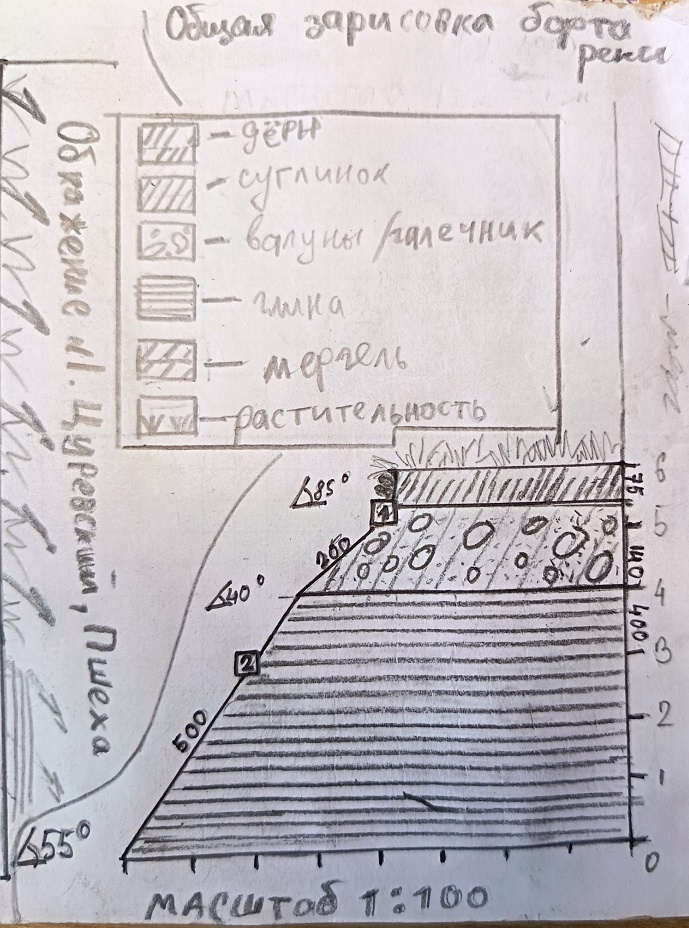 Общая зарисовка борта
реки
- дёрн
- суглинок
- валуны/галечник
- глина
- мергель
- растительность
Обнажение м. Цуревский, Пшеха
∠85°
80
1
200
∠40°
2
500
∠55°
6
75
5
140
4
400
3
2
1
0
МАСШТАБ 1:100